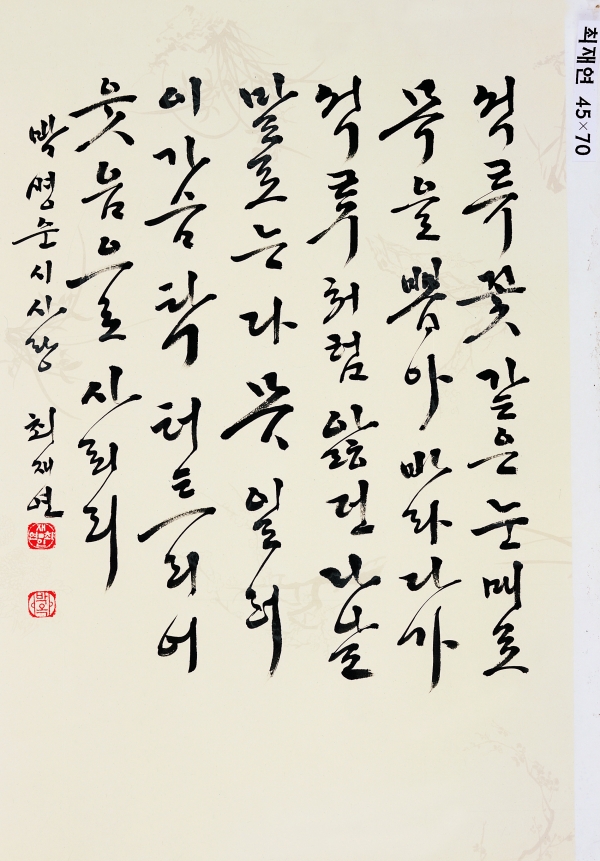 최재연 45×70
석류꽃 같은 눈매로
목을 뽑아 바라다가
석류처럼 앓던 나날
말로는 다 못 일러
이 가슴 탁 터트리어
웃음으로 사뢰리
박병순 시 사랑 최재연